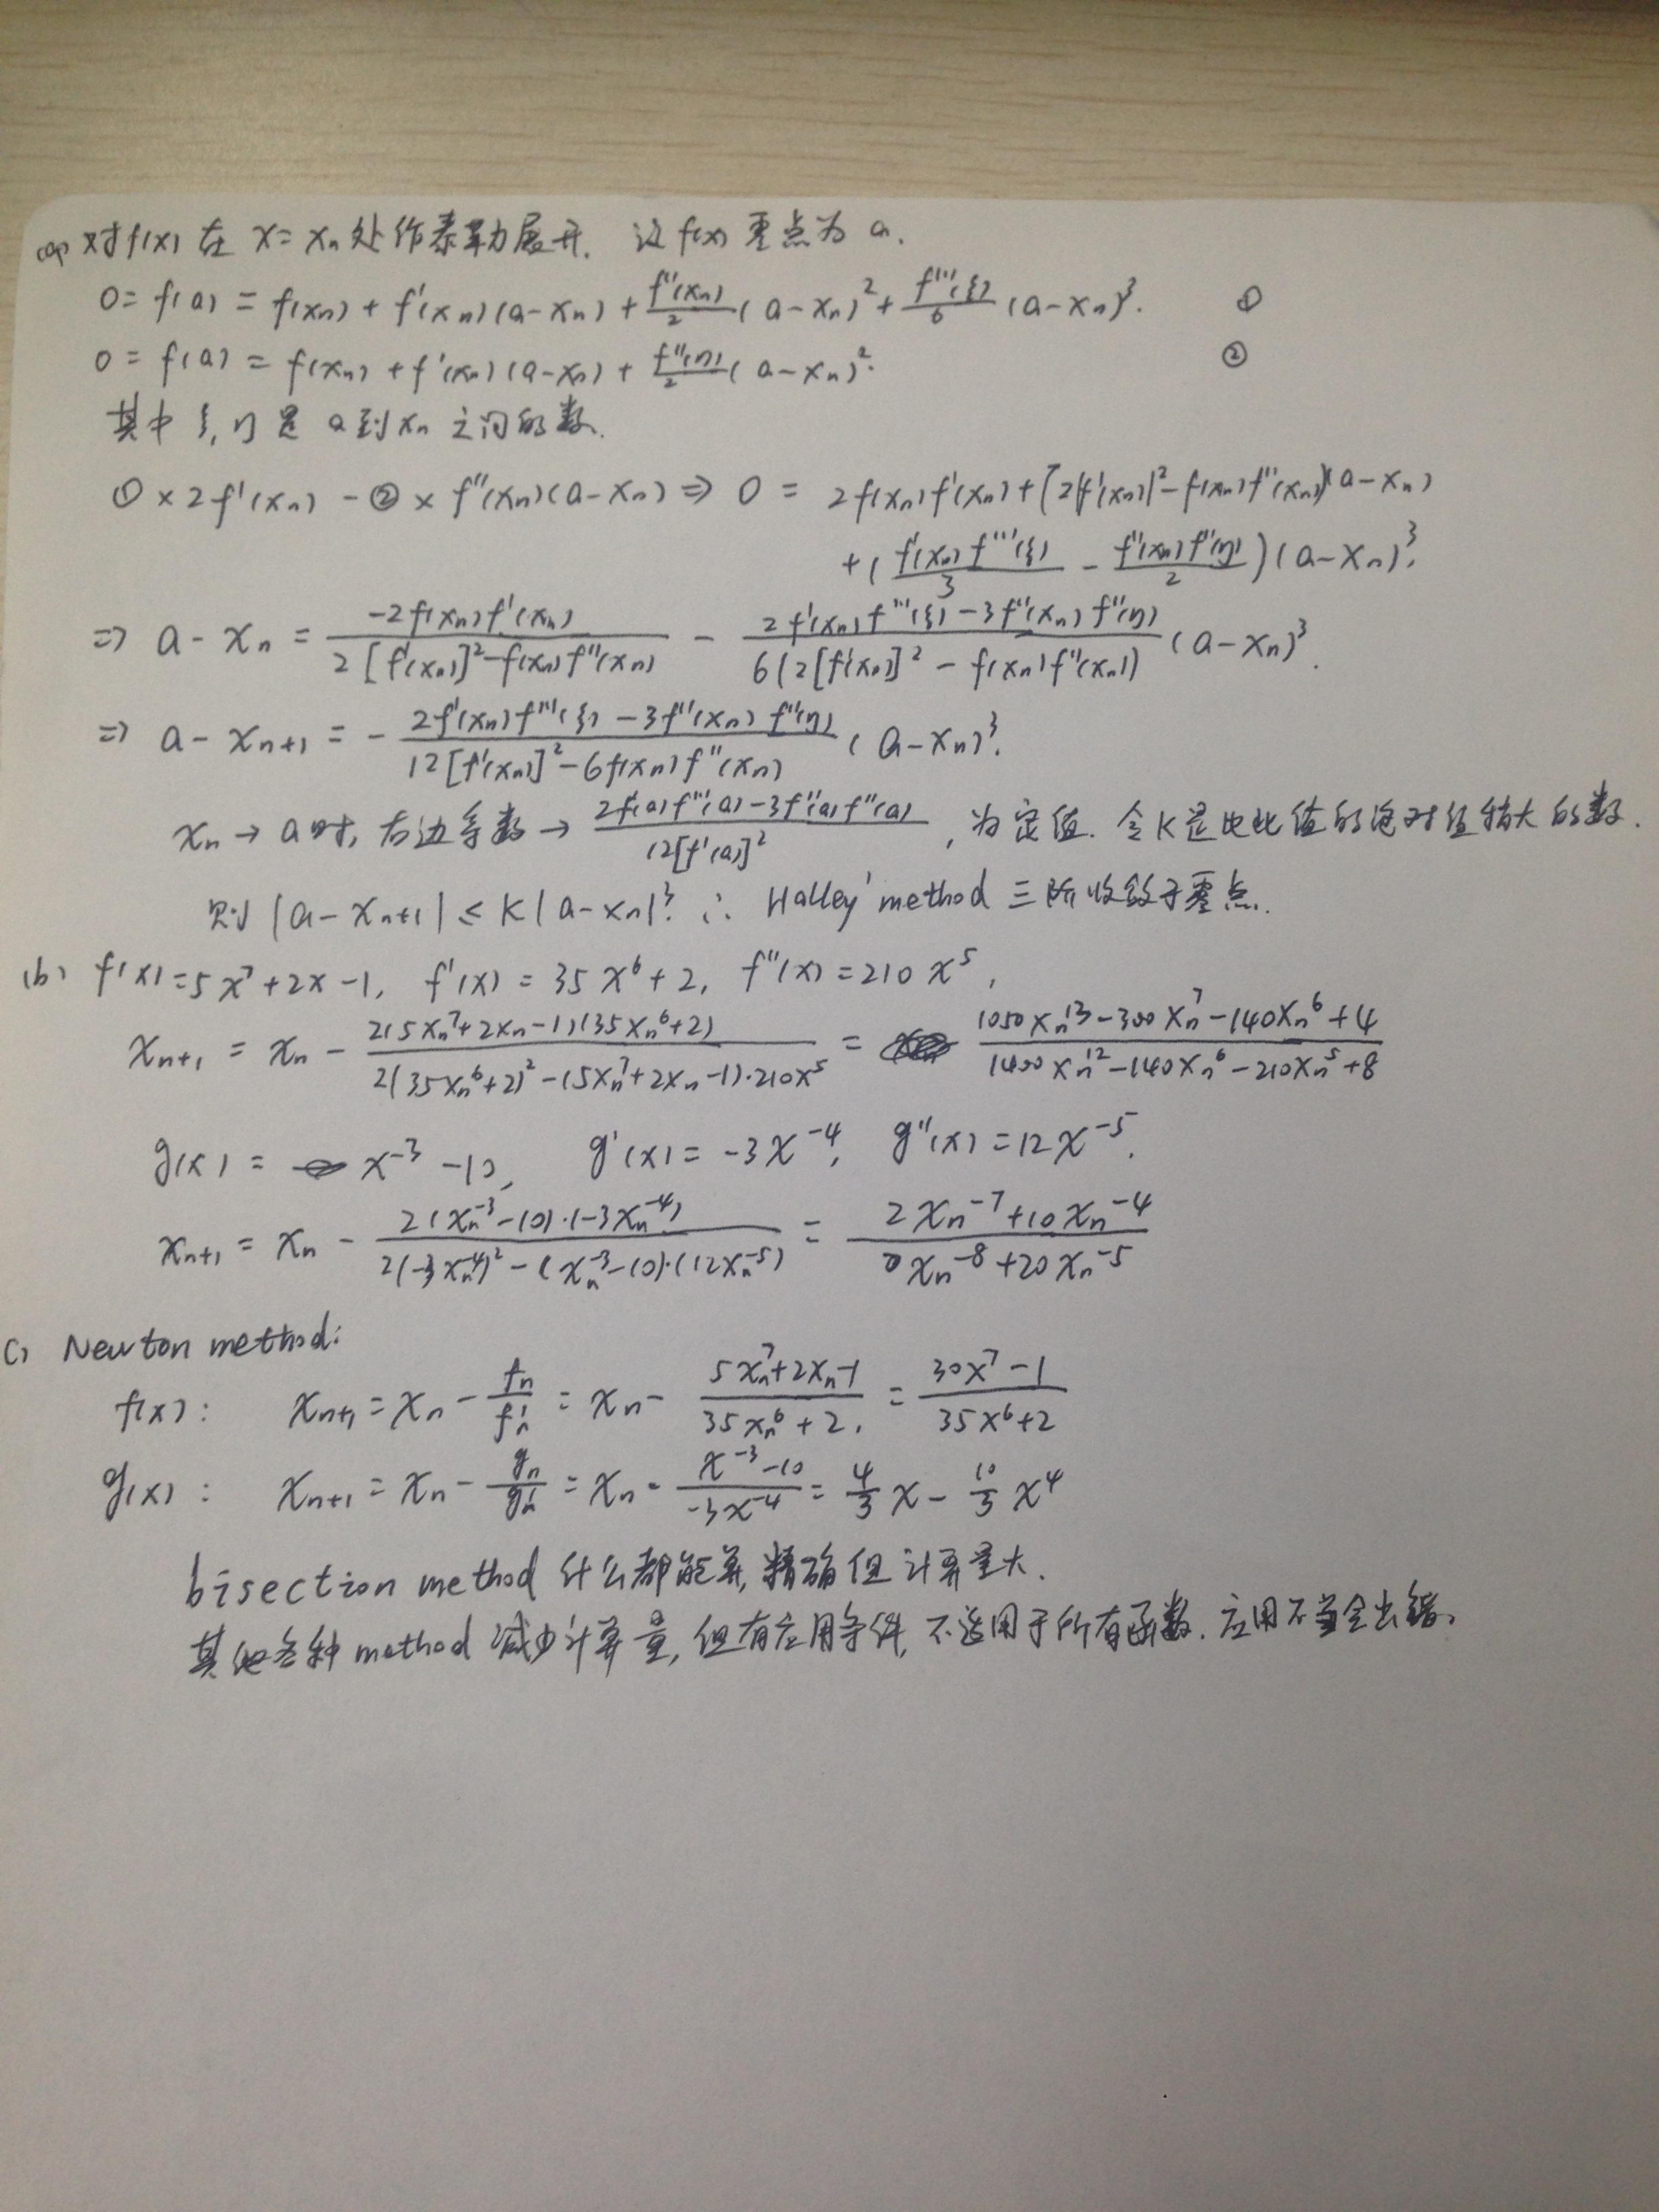 (a) 对f(x) 在 x = xₙ 处作泰勒展开. 设 f(x) 零点为 a.
0 = f(a) = f(xₙ) + f'(xₙ)(a-xₙ) + f''(xₙ)/2 (a-xₙ)² + f'''(ξ)/6 (a-xₙ)³. ①
0 = f(a) = f(xₙ) + f'(xₙ)(a-xₙ) + f''(η)/2 (a-xₙ)². ②
其中 ξ, η 是 a到xₙ 之间的数.
① × 2f'(xₙ) - ② × f''(xₙ)(a-xₙ) ⇒ 0 = 2f(xₙ)f'(xₙ) + (2[f'(xₙ)]² - f(xₙ)f''(xₙ))(a-xₙ)
+ (f'(xₙ)f'''(ξ)/3 - f''(xₙ)f''(η)/2)(a-xₙ)³.
⇒ a-xₙ = -2f(xₙ)f'(xₙ) / (2[f'(xₙ)]² - f(xₙ)f''(xₙ)) - (2f'(xₙ)f'''(ξ) - 3f''(xₙ)f''(η)) / (6(2[f'(xₙ)]² - f(xₙ)f''(xₙ))) (a-xₙ)³.
⇒ a-xₙ₊₁ = - (2f'(xₙ)f'''(ξ) - 3f''(xₙ)f''(η)) / (12[f'(xₙ)]² - 6f(xₙ)f''(xₙ)) (a-xₙ)³.
xₙ → a 时, 右边系数 → (2f'(a)f'''(a) - 3f''(a)f''(a)) / 12[f'(a)]², 为定值. 令K是比此值的绝对值稍大的数.
则 |a-xₙ₊₁| ≤ K|a-xₙ|³. ∴ Halley' method 三阶收敛于零点.
(b) f(x) = 5x⁷+2x-1, f'(x) = 35x⁶+2, f''(x) = 210x⁵,
xₙ₊₁ = xₙ - 2(5xₙ⁷+2xₙ-1)(35xₙ⁶+2) / (2(35xₙ⁶+2)² - (5xₙ⁷+2xₙ-1)·210x⁵) = (1050xₙ¹³-300xₙ⁷-140xₙ⁶+4) / (1400xₙ¹²-140xₙ⁶-210xₙ⁵+8)
g(x) = x⁻³-10, g'(x) = -3x⁻⁴, g''(x) = 12x⁻⁵.
xₙ₊₁ = xₙ - 2(xₙ⁻³-10)·(-3xₙ⁻⁴) / (2(-3xₙ⁻⁴)² - (xₙ⁻³-10)·(12xₙ⁻⁵)) = (2xₙ⁻⁷+10xₙ⁻⁴) / (xₙ⁻⁸+20xₙ⁻⁵)
c) Newton method:
f(x): xₙ₊₁ = xₙ - fₙ/f'ₙ = xₙ - (5xₙ⁷+2xₙ-1)/(35xₙ⁶+2) = (30x⁷-1)/(35x⁶+2)
g(x): xₙ₊₁ = xₙ - gₙ/g'ₙ = xₙ - (x⁻³-10)/(-3x⁻⁴) = 4/3 x - 10/3 x⁴
bisection method 什么都能算, 精确但计算量大.
其他各种method 减少计算量, 但有应用条件, 不适用于所有函数. 应用不当会出错.